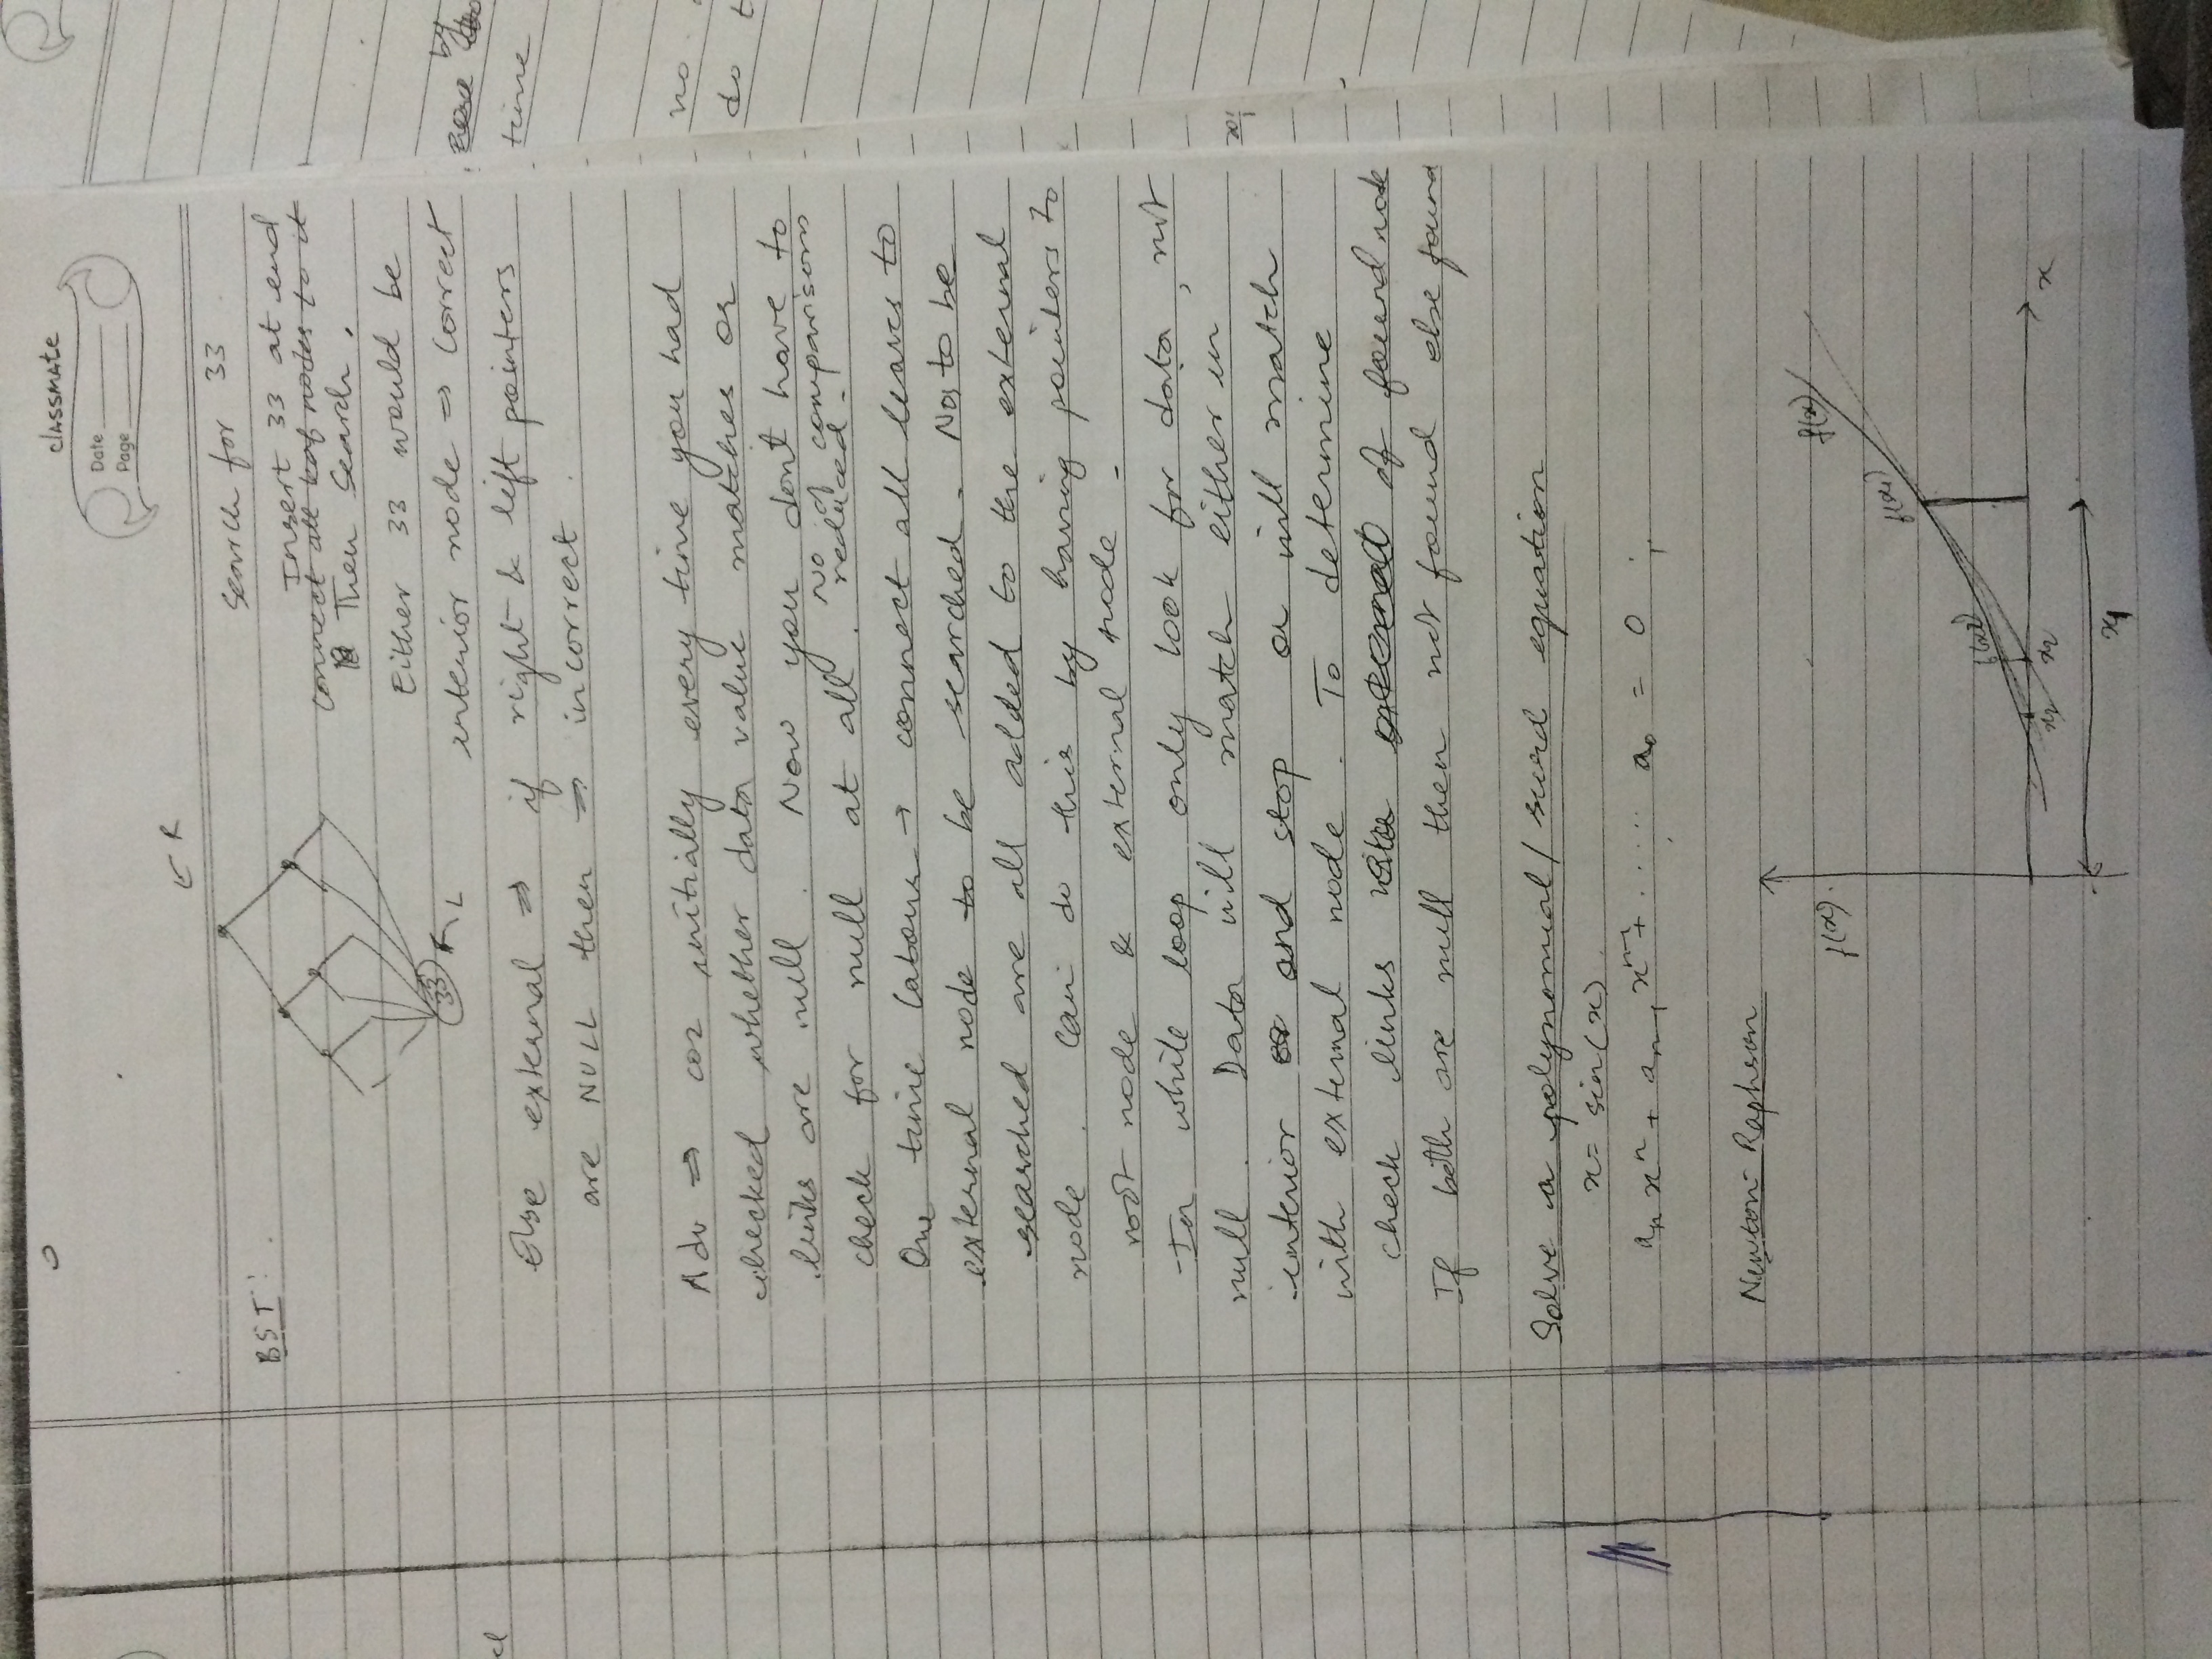 classmate
Date
Page
← R
BST:
Search for 33
Insert 33 at end
connect all leaf nodes to it
Then Search.
Either 33 would be
33 ← L
interior node ⇒ correct
Else external ⇒ if right & left pointers
are NULL then ⇒ incorrect.
Adv ⇒ coz initially every time you had
checked whether data value matches or
links are null. Now you dont have to
check for null at all. No of comparisons
reduced.
One time labour → connect all leaves to
external node to be searched. Nos to be
searched are all added to the external
node. Can do this by having pointers to
root node & external node.
In while loop only look for data, not
null. Data will match either in
interior or and stop or will match
with external node. To determine
check links of found node
If both are null then not found else found
Solve a polynomial / surd equation
x = sin(x)
aₙ xⁿ + aₙ₋₁ xⁿ⁻¹ + ...... a₀ = 0 ;
Newton-Raphson
f(x)
f(x)
f(x₁)
f(x2)
x₂ x₂
x
x₁
cl
by
time
no
do t